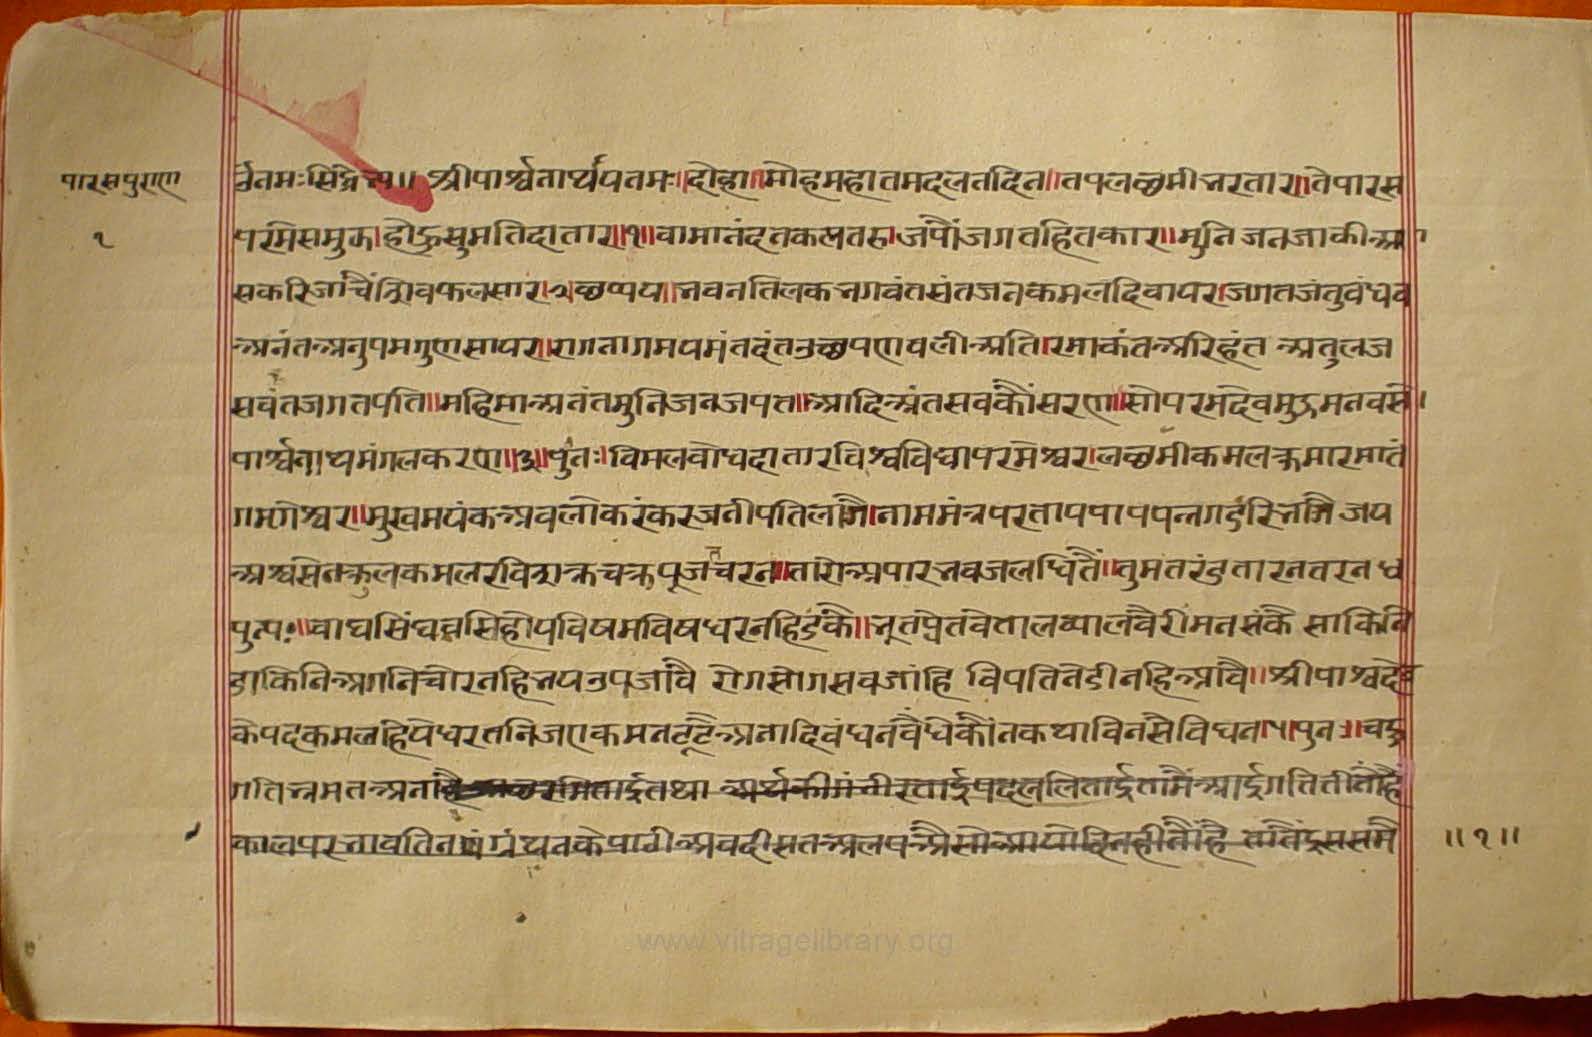 पारसपुराण
१
र्वनमःसिद्धेभ्य॥ श्रीपार्श्वनाथायनमः॥दोहा॥मोहमहातमदलनदिन॥तपलछमीभरतार॥तेपारस
परमेसमुझ।होऊसुमतिदातार॥१॥वामानंदनकलपतरु।जंपौजगतहितकार॥मुनि जनजाकीआ
सकरिजांचैशिवफलसार।२।छप्पय॥भवनतिलकभगवंतसंतजनकमलदिवायर।जगतजंतुबंधव
अनंतअनुपमगुणसायर॥रागनागमयमंतदंतउछपणवलीअति।रमाकंतअरिहंत अतुलज
सवंतजगतपति॥महिमाअनंतमुनिजनजपत॥आदिअंतसबकौंसरण॥सोपरमदेवमुझमनवसै
पार्श्वनाथमंगलकरण॥३॥पुनः॥विमलबोधदातारविश्वविद्यापरमेश्वर।लछमीकमलकुमारमातं
गमगेश्वर॥मुखमयंकअवलोकरंकरजनीपतिलाजै।नाममंत्रपरतापपापपन्नगडरिभाजै जय
अश्वसेनकुलकमलरविशक्रचक्रपूजतचरन॥तारोअपारभवजलधितैं॥तुमतरंडतारनतरन ध
पुनः॥वाघसिंघवसिहोयविषमविषधरनहिडंकै॥भूतप्रेतवेतालव्यालवैरीमनसंकै साकिनि
डाकिनिअगनिचोरनहिभयउपजांवै रोगसोगसबजांहि विपतिनेडीनहिआंवै॥श्रीपार्श्वदेव
केपदकमलहियेधरतनिजएकमनछूटैअनादिबंधनबंधेकौंनकथाविनसैविघन।५।पुनः॥चहु
गतिभ्रमतअनां
॥१॥
www.vitragelibrary.org